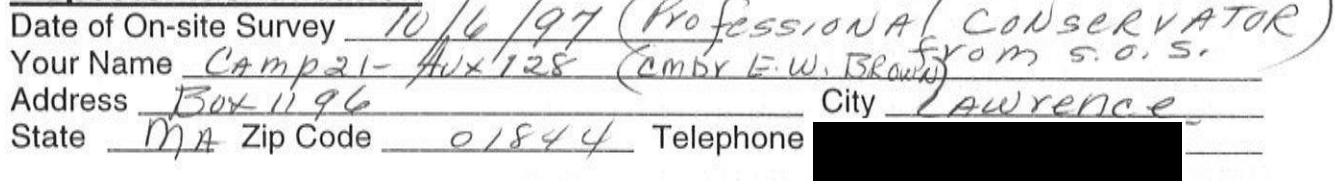 Date of On-site Survey 10/6/97 (Professional Conservator)
from S.O.S.
Your Name Camp 21- Aux 128 (cmdr E.W. Brown)
Address Box 1196 City Lawrence
State MA Zip Code 01844 Telephone